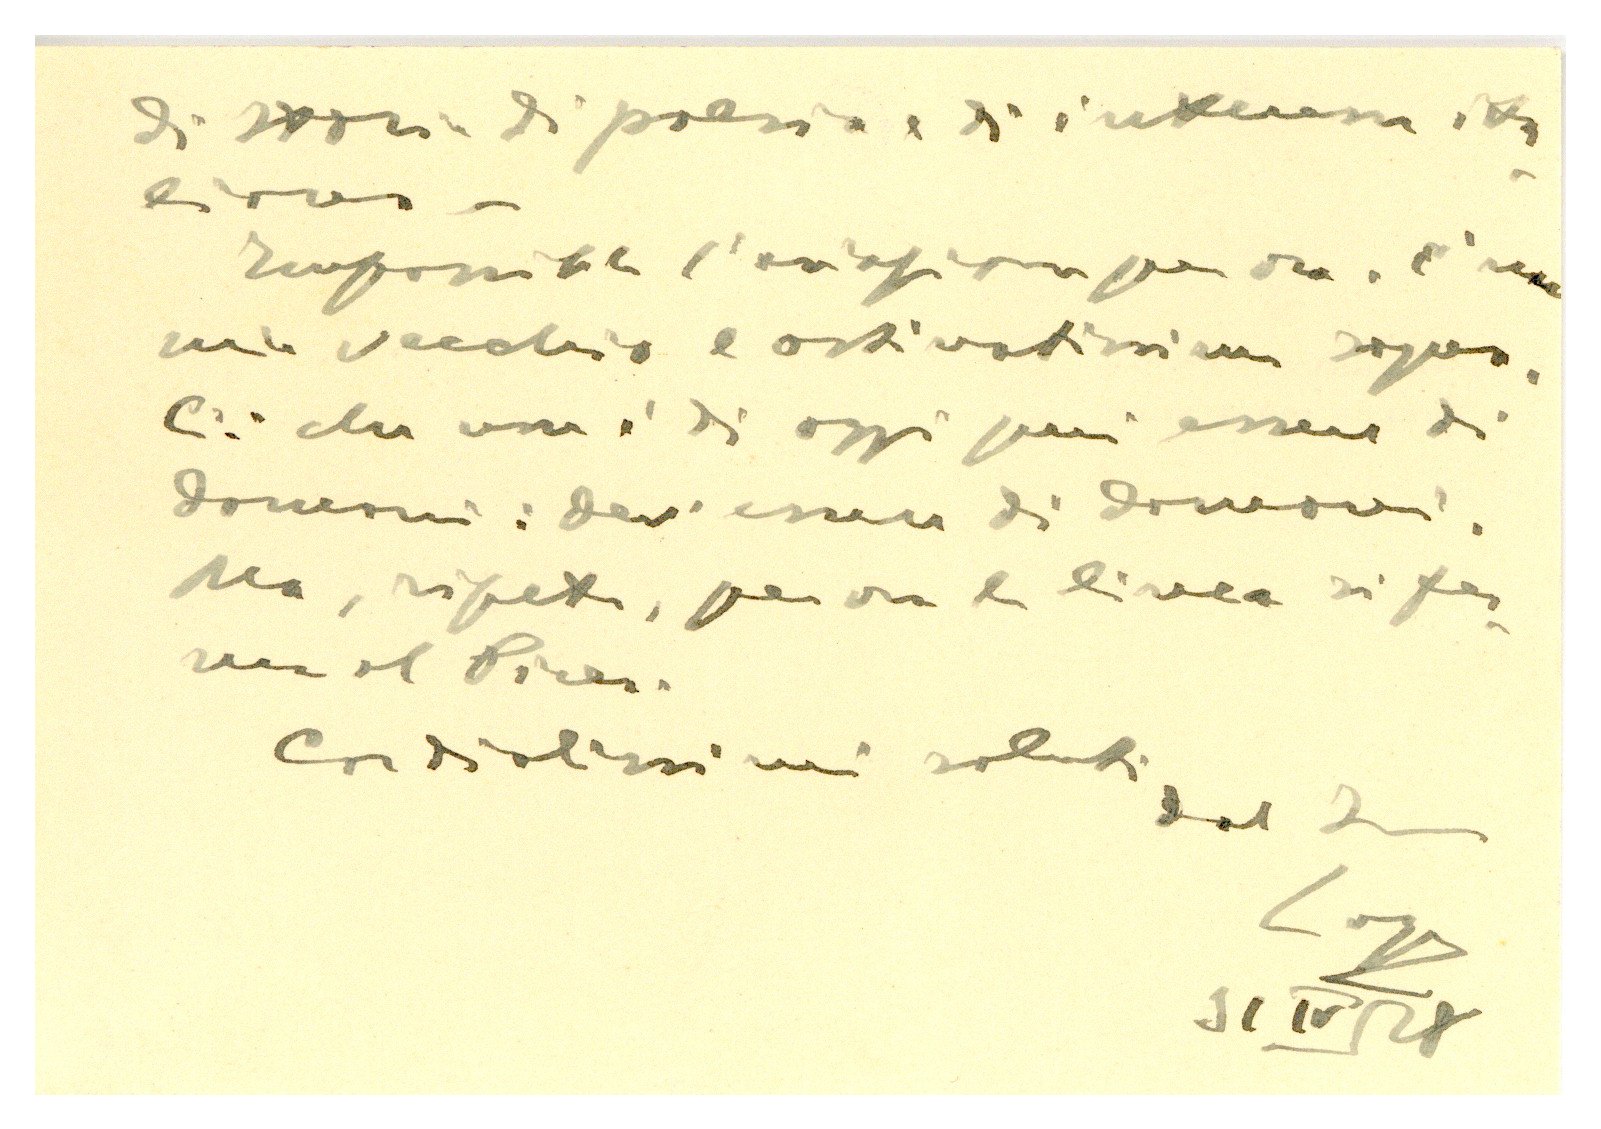 di storia di poesia e di interesse ita
liano –
Impossibile l'aviazione per ora. È un
mio vecchio e ostinatissimo sogno.
Ciò che non è di oggi può essere di
domani: dev'essere di domani.
Ma, ripeto, per ora la linea si fer-
ma al Pireo.
Cordialissimi saluti
dal
IV 28